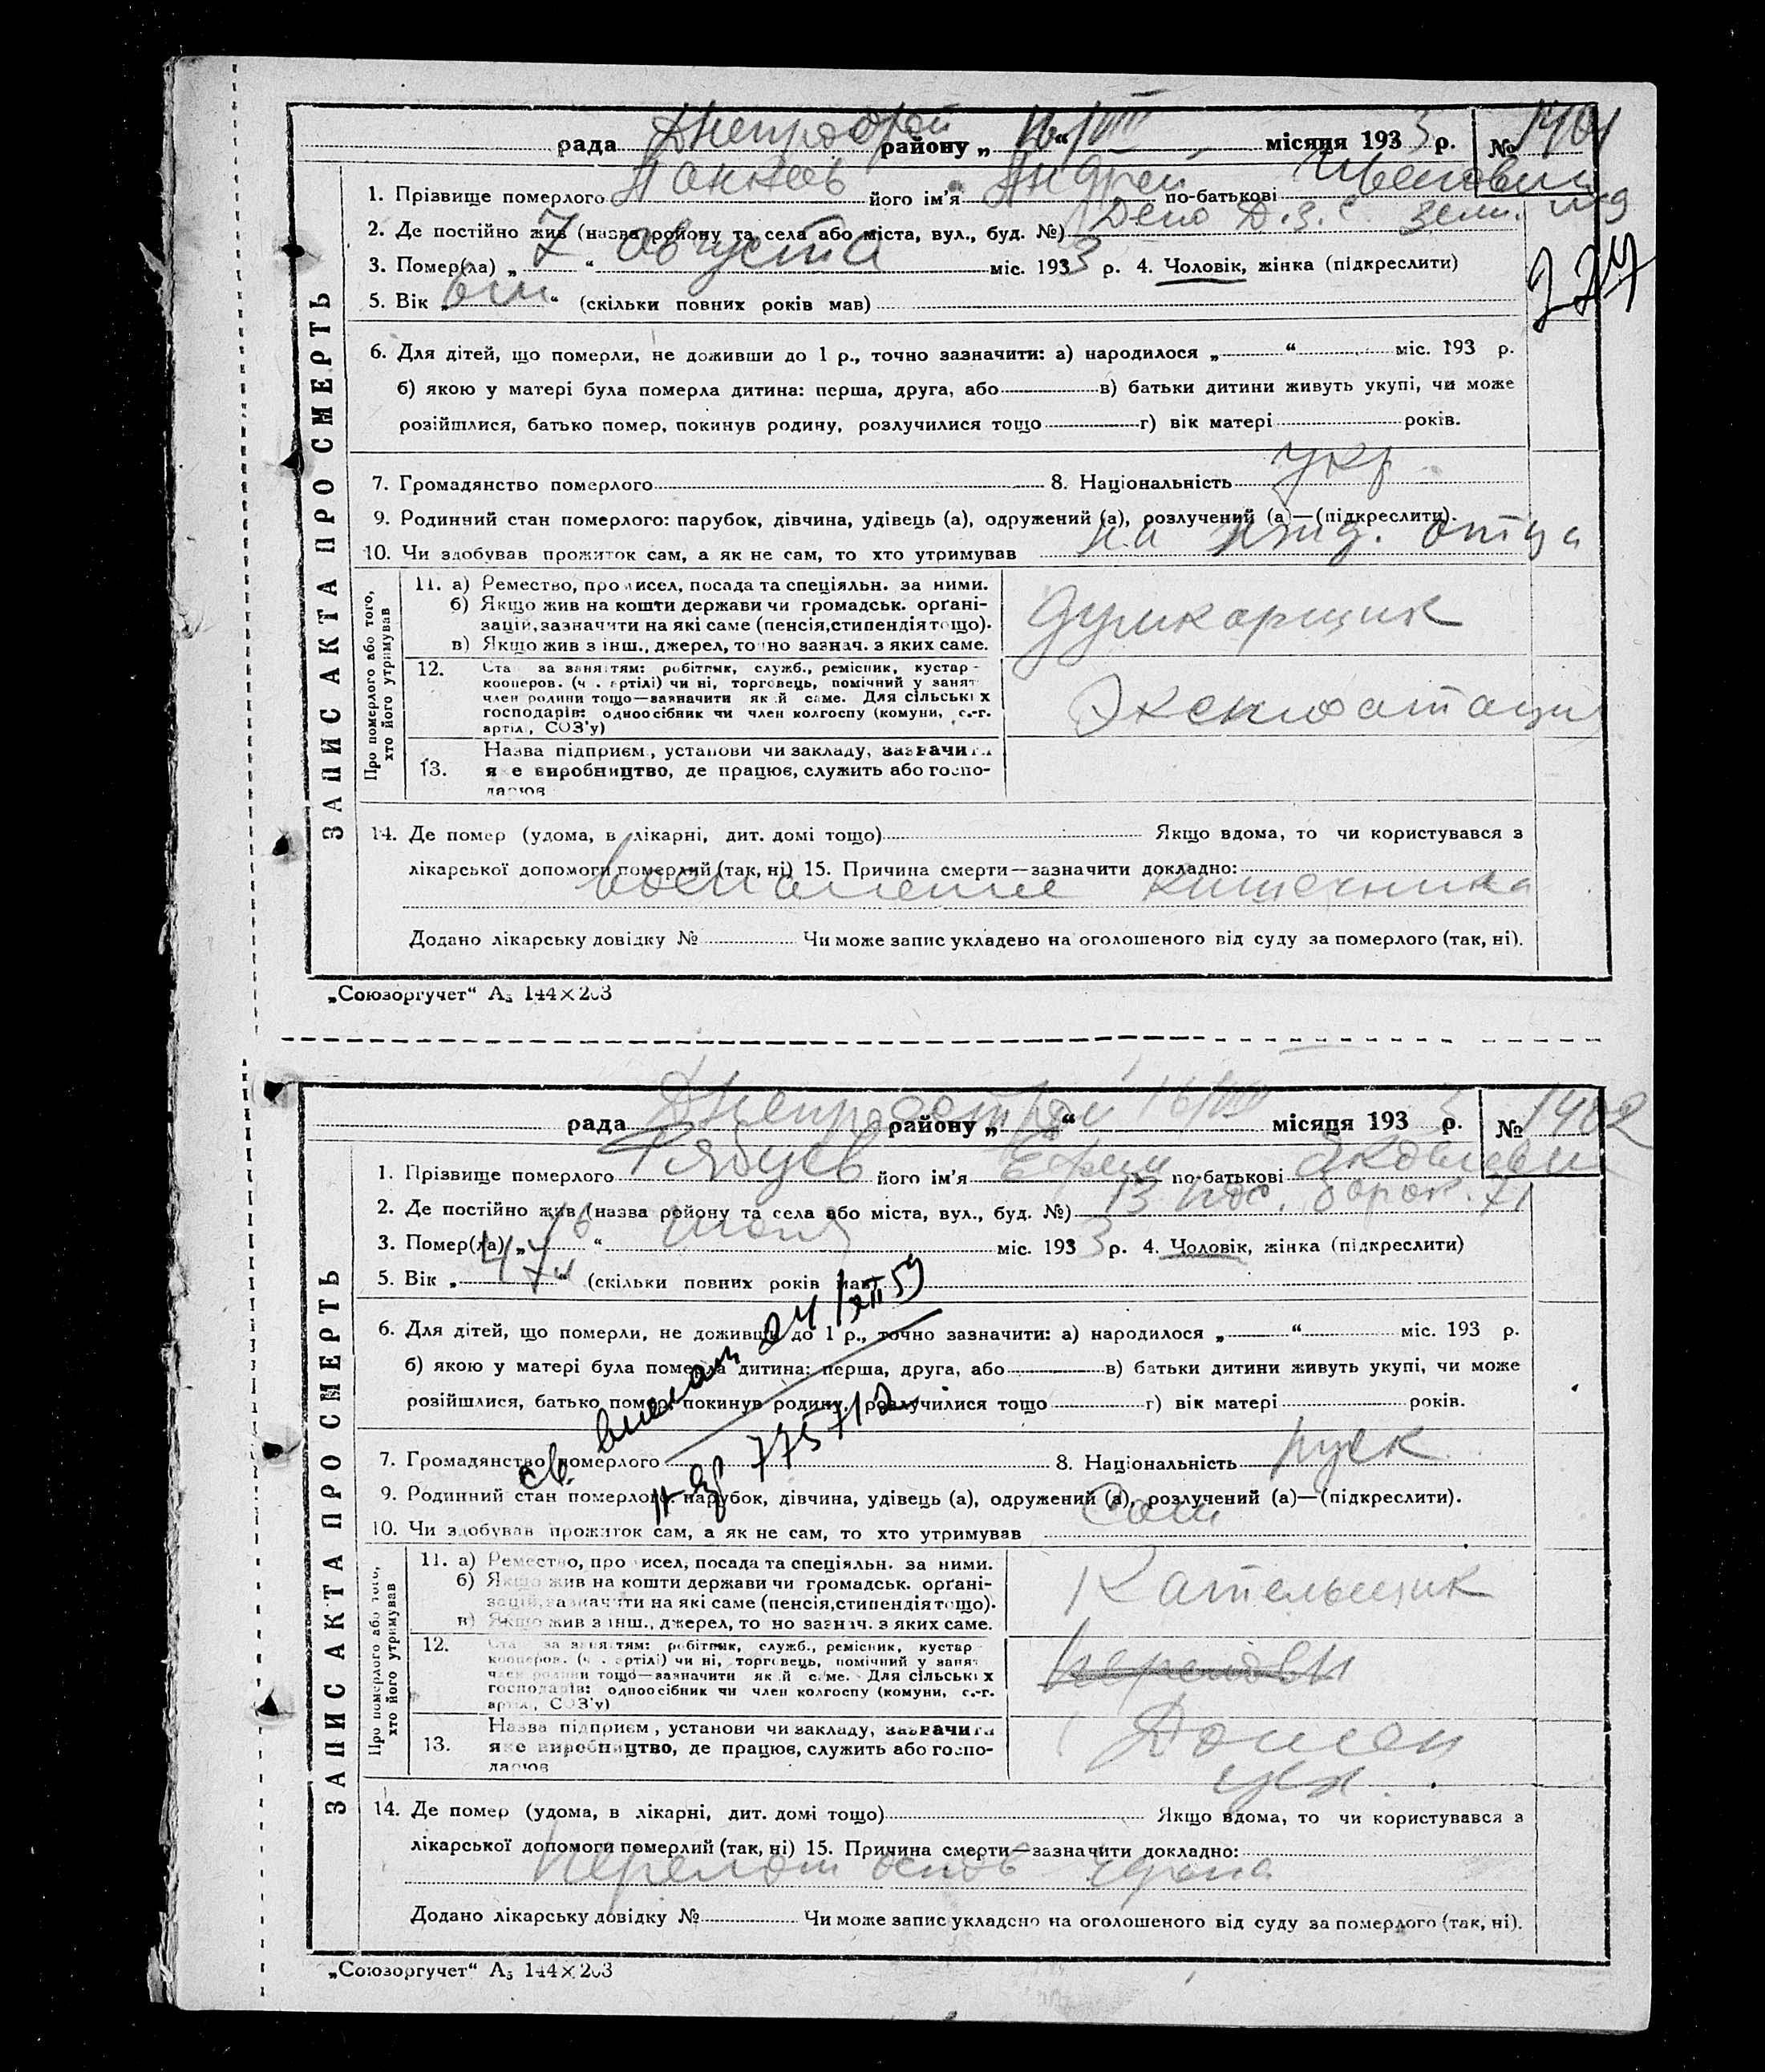 рада Днепрострой району „ 16/VIII “ місяця 1933 р. № 1401
1. Прізвище померлого його ім'я Андрей по-батькові Иванович
2. Де постійно жив (назва району та села або міста, вул., буд. №) Депо Д.З.С. земл.
3. Помер(ла) „ 7 “ августа міс. 1933 р. 4. Чоловік, жінка (підкреслити)
227
5. Вік „ 6 м “ (скільки повних років мав)
6. Для дітей, що померли, не доживши до 1 р., точно зазначити: а) народилося „ “ міс. 193 р.
б) якою у матері була померла дитина: перша, друга, або в) батьки дитини живуть укупі, чи може
розійшлися, батько помер, покинув родину, розлучилися тощо г) вік матері років.
7. Громадянство померлого 8. Національність укр
9. Родинний стан померлого: парубок, дівчина, удівець (а), одружений (а), розлучений (а)—(підкреслити).
10. Чи здобував прожиток сам, а як не сам, то хто утримував на ижд. отца
ЗАПИС АКТА ПРО СМЕРТЬ
Про померлого або того, хто його утримував
11. а) Ремество, промисел, посада та спеціяльн. за ними.
б) Якщо жив на кошти держави чи громадськ. орґані-
зацій, зазначити на які саме (пенсія, стипендія тощо).
в) Якщо жив з інш., джерел, точно зазнач. з яких саме.
12. Стан за заняттям: робітник, служб., ремісник, кустар -
кооперов. (чл. артілі) чи ні, торговець, помічний у занят
член родини тощо—зазначити який саме. Для сільських
господарів: одноосібник чи член колгоспу (комуни, с.-г.
артілі, СОЗ'у)
Эксплоатации
13. Назва підприєм., установи чи закладу, зазначити
яке виробництво, де працює, служить або госпо-
дарює
14. Де помер (удома, в лікарні, дит. домі тощо) Якщо вдома, то чи користувався з
лікарської допомоги померлий (так, ні) 15. Причина смерти—зазначити докладно:
воспаление кишечника
Додано лікарську довідку № Чи може запис укладено на оголошеного від суду за померлого (так, ні).
„Союзоргучет“ А₅ 144×203
рада Днепрострой району „ 16/VIII “ місяця 1933 р. № 1402
1. Прізвище померлого Рябцев його ім'я Ефрем по-батькові Яковлевич
2. Де постійно жив (назва району та села або міста, вул., буд. №) 13 пос. барак. 71
3. Помер(ла) „ “ июля міс. 1933 р. 4. Чоловік, жінка (підкреслити)
5. Вік „ 47 л “ (скільки повних років мав)
6. Для дітей, що померли, не доживши до 1 р., точно зазначити: а) народилося „ “ міс. 193 р.
б) якою у матері була померла дитина: перша, друга, або в) батьки дитини живуть укупі, чи може
розійшлися, батько помер, покинув родину, розлучилися тощо г) вік матері років.
св. 24/XII 59
775712
7. Громадянство померлого 8. Національність руск
9. Родинний стан померлого: парубок, дівчина, удівець (а), одружений (а), розлучений (а)—(підкреслити).
10. Чи здобував прожиток сам, а як не сам, то хто утримував Сам
ЗАПИС АКТА ПРО СМЕРТЬ
Про померлого або того, хто його утримував
11. а) Ремество, промисел, посада та спеціяльн. за ними.
б) Якщо жив на кошти держави чи громадськ. орґані-
зацій, зазначити на які саме (пенсія, стипендія тощо).
в) Якщо жив з інш., джерел, точно зазнач. з яких саме.
Кательщик
12. Стан за заняттям: робітник, служб., ремісник, кустар
кооперов. (чл. артілі) чи ні, торговець, помічний у занят
член родини тощо—зазначити який саме. Для сільських
господарів: одноосібник чи член колгоспу (комуни, с.-г.
артілі, СОЗ'у)
13. Назва підприєм., установи чи закладу, зазначити
яке виробництво, де працює, служить або госпо-
дарює
Домен
цех
14. Де помер (удома, в лікарні, дит. домі тощо) Якщо вдома, то чи користувався з
лікарської допомоги померлий (так, ні) 15. Причина смерти—зазначити докладно:
Перелом основ черепа
Додано лікарську довідку № Чи може запис укладено на оголошеного від суду за померлого (так, ні).
„Союзоргучет“ А₅ 144×203